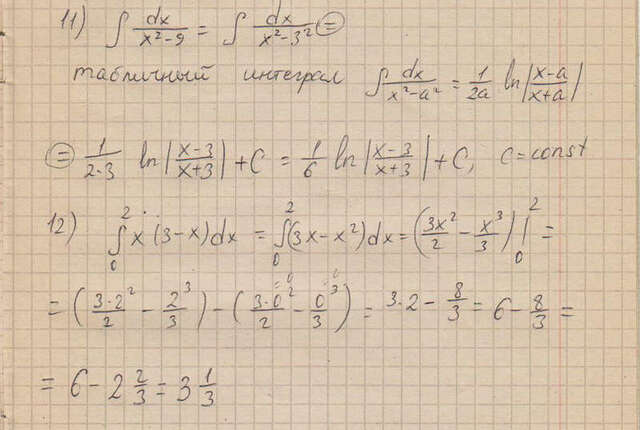 11) ∫ dx/(x²-9) = ∫ dx/(x²-3²) =
табличный интеграл ∫ dx/(x²-a²) = 1/(2a) ln|(x-a)/(x+a)|
= 1/(2·3) ln|(x-3)/(x+3)| + C = 1/6 ln|(x-3)/(x+3)| + C, C=const
12) ∫₀² x(3-x)dx = ∫₀² (3x-x²)dx = (3x²/2 - x³/3)|₀² =
= (3·2²/2 - 2³/3) - (3·0²/2 - 0³/3) = 3·2 - 8/3 = 6 - 8/3 =
= 6 - 2 2/3 = 3 1/3